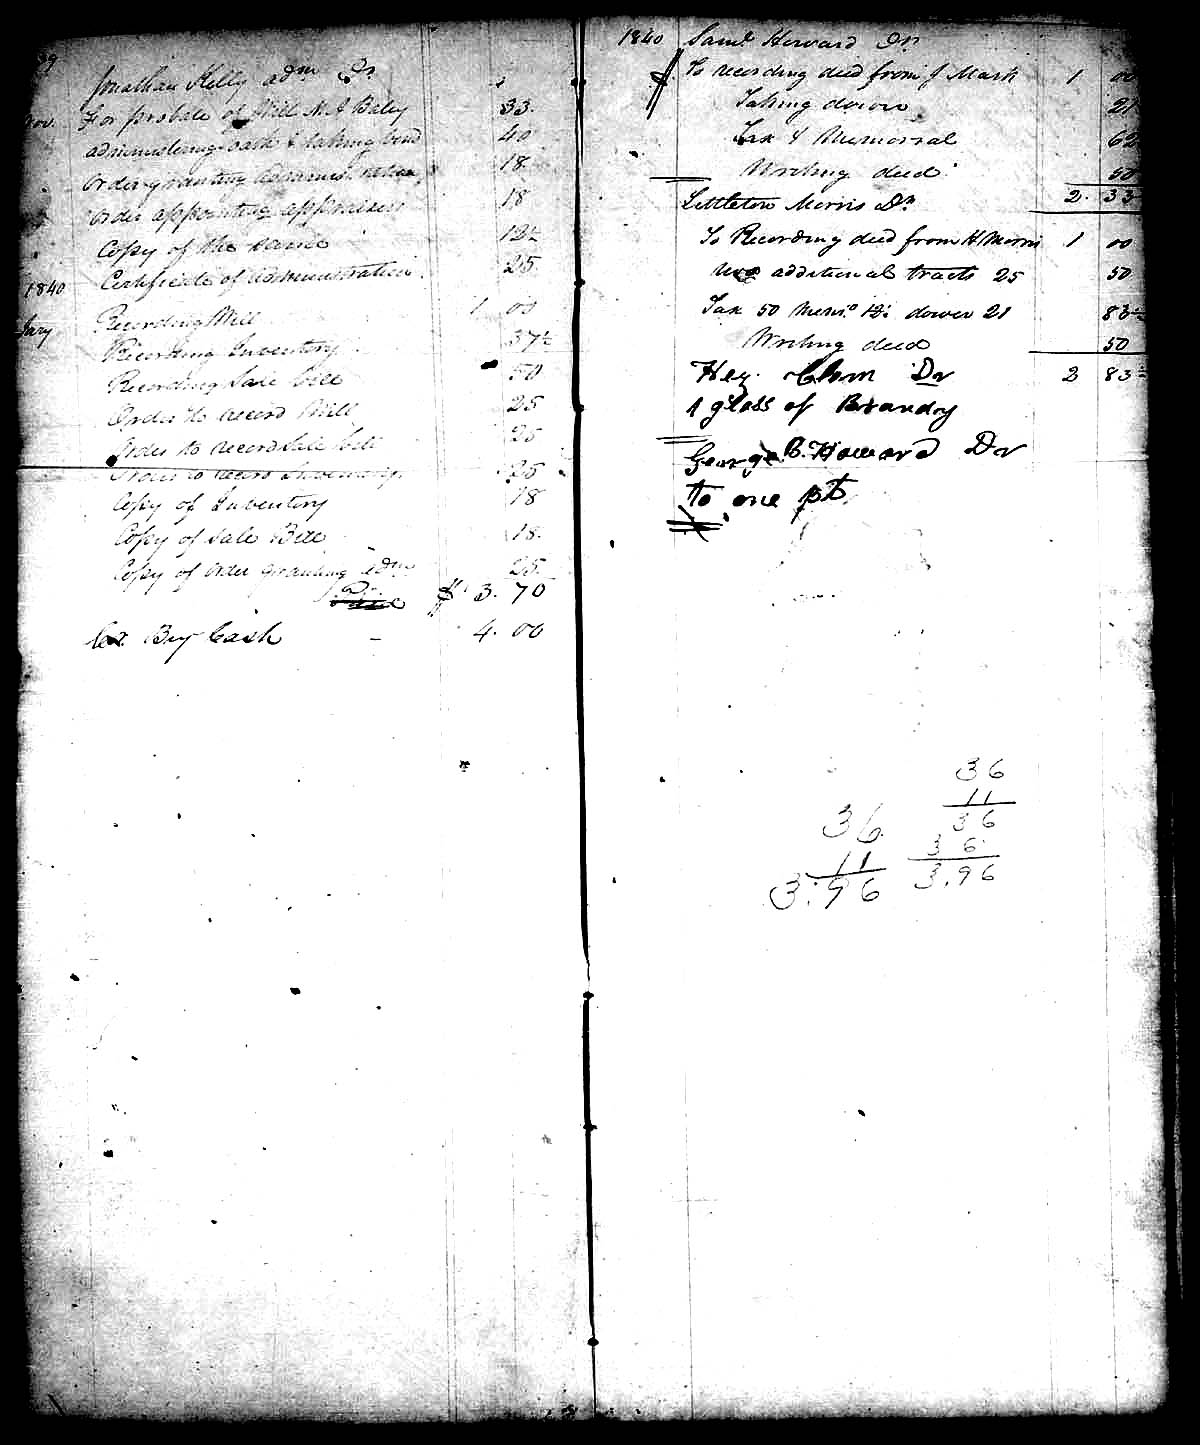 39
Jonathan Kelly adm Dr
Nov. For probate of Will M. A Baley 33.
administering oath & taking bond 40
Order granting 18
Order appointing appraisers 18
Copy of the same 12½
Certificate of administration 25
1840
Recording Will 1 00
Jary
Recording Inventory 37½
Recording Sale bill 50
Order to record Will 25
Order to record Sale bill 25
Order to record Inventory 25
Copy of Inventory 18
Copy of Sale Bill 18.
Copy of order granting adm 25.
$ 3. 70
Cr. By Cash - 4. 00
1840 Saml Howard Dr
To recording deed from J Mash 1 00
Taking dower 21
Tax & Memorial 62
Writing deed 50
2. 33
Littleton Morris Dr
To Recording deed from H Morris 1 00
two additional tracts 25 50
Tax 50 Memo 12½ dower 21 83½
Writing deed 50
2 83½
Hez. Dr
1 glass of Brandy
George B. Howard Dr
to one pt
36
11
36
36
3.96
36
11
3.96